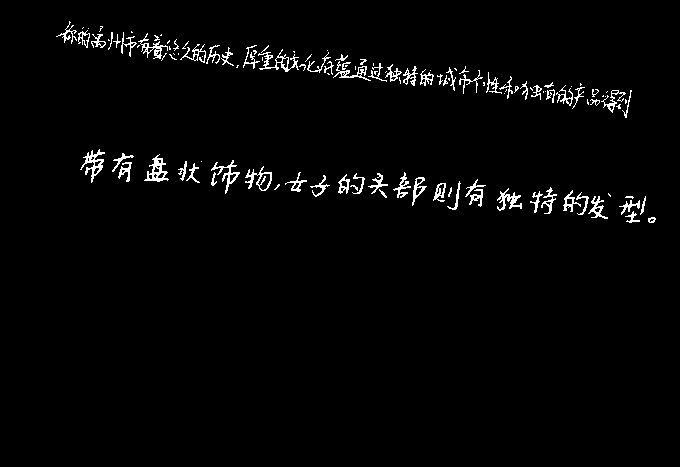 称的禹州市有着悠久的历史,厚重的文化底蕴通过独特的城市个性和独有的产品得到
带有盘状饰物,女子的头部则有独特的发型。